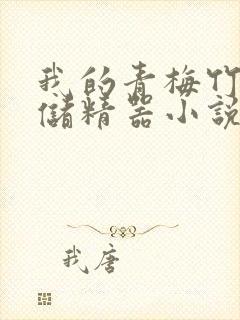 我的青梅竹
儲精器小説
我唐